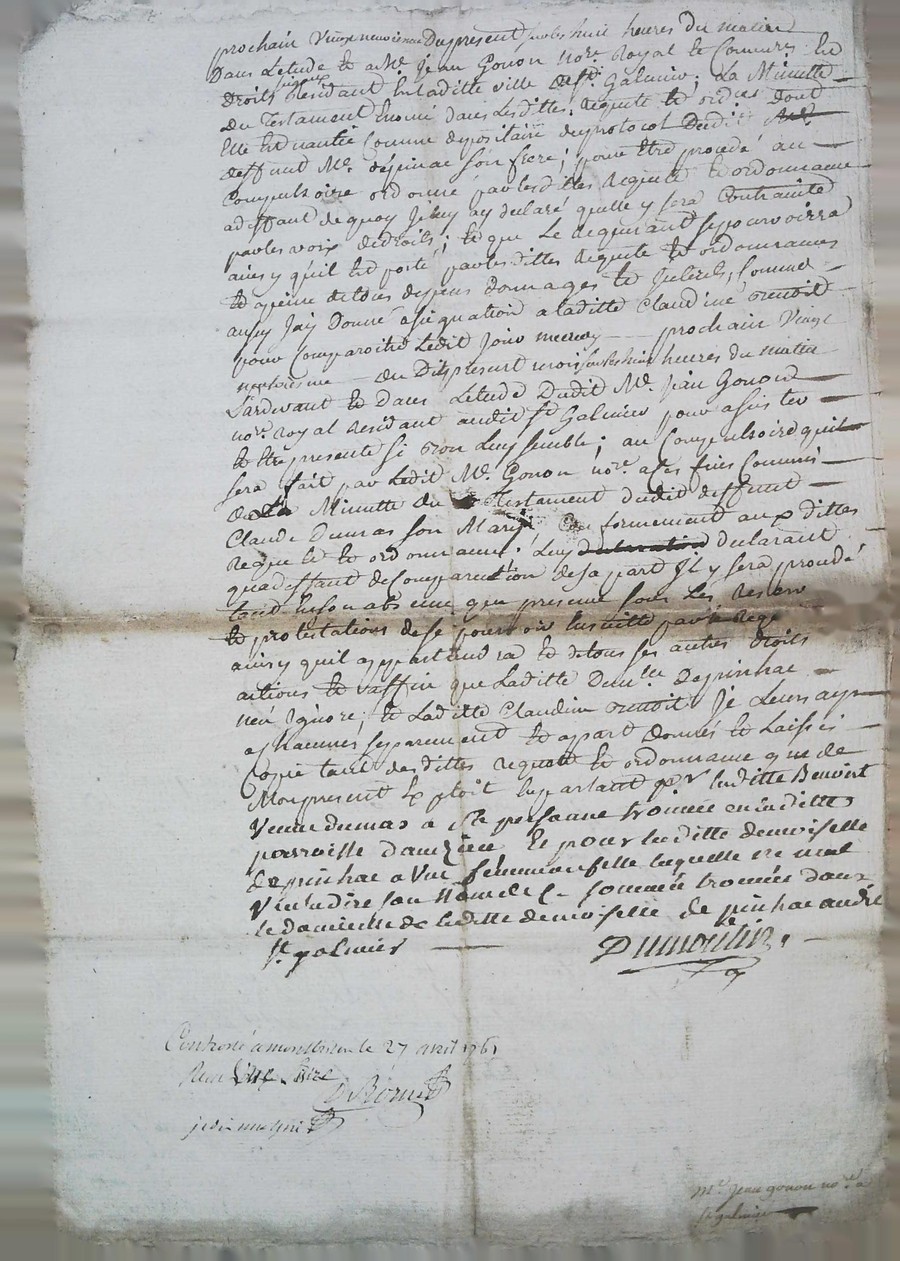 prochain Vingt neuvieme Du present sur les huit heures Du matin
Dans Letude de Me. Jean Gonon nore. Royal et Commre. En
Droits Residant En laditte ville de St. Galmier. La Minutte
Du Testament Enoncé dans Lesdittes Requete et ordces dont
Elle Est nantie Comme depositaire du protocol Dudit
deffunt Me. depinac son frere; pour Etre procedé au
Compulsoire ordonné par lesdittes Requete Et ordonnance
a deffaut de quoy Je luy ay declaré quelle y sera Contrainte
par les voix de droits; Et que Le Requerant se pourvoirra
ainsy quil Est porté par lesdittes Requete Et ordonnances
Et a peine de tous depens Dommages Et Interets, Comme
aussy Jay Donné assignation a laditte Claudine
pour Comparoitre Ledit Jour mercredy prochain Vingt
neuvieme du Dit present mois sur les huit heures du matin
Pardevant Et dans Letude Dudit Me. Jean Gonon
nore. Royal Residant audit St Galmier pour assister
Et Etre presente si Bon Luy semble; au Compulsoire quil
sera fait par Ledit Me. Gonon nore. a ses fins Commis
De La Minutte du Testament dudit deffunt
Claude Dumas son Mary, Conformement aux dittes
Requete Et ordonnance; Luy declarant
qua deffaut de Comparution de sa part Il y sera procedé
tant En son absence que presence sous Les Reserv
Et protestations de se pourvoir Ensuitte par
ainsy quil appartiendra Et de tous ses autres Droits
actions Et affin que Laditte Demlle Depinhac
nen Ignore; Et Laditte Claudine Je Leurs ay
a Chacunes separement Et apart donnés Et Laissés
Copie tant desdittes Requete Et ordonnance que de
Mon present Exploit En parlant pr laditte Benoist
Veuve dumas a sa personne trouvée en laditte
parroisse Et pour laditte demoiselle
depinhac a Une femme ou fille laquelle ne mal
Vouludire son Nom de Ce sommée trouvée dans
le domicille de laditte demoiselle de pinhac audit
St galmier
Dumoulin
Controlé a montbrison le 27 avril 1761
Reçu
Me. Jean gonon nore. a
St galmier